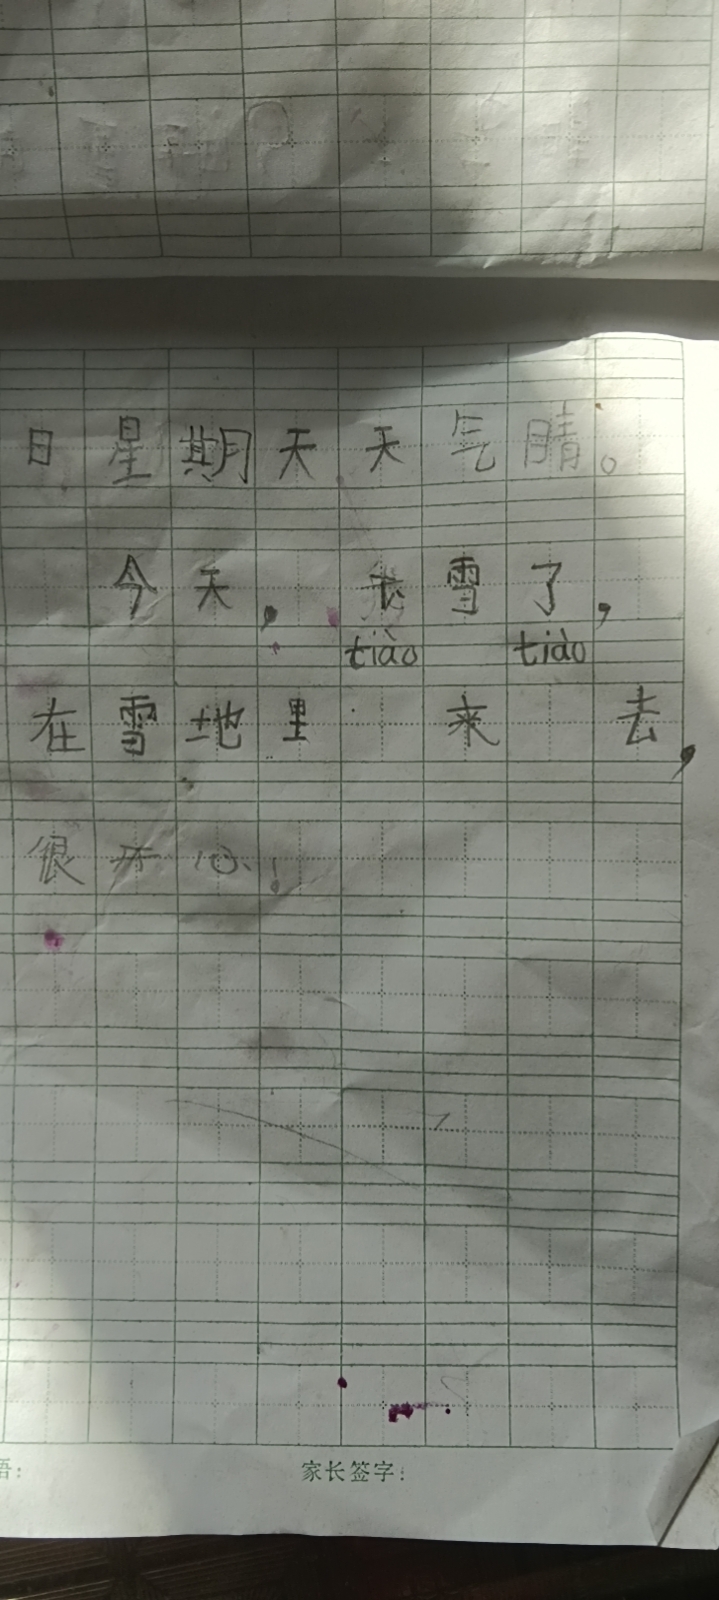 日星期天天气晴。
今天，雪了，
tiào tiào
在雪地里 来 去，
很开心！
语：
家长签字：